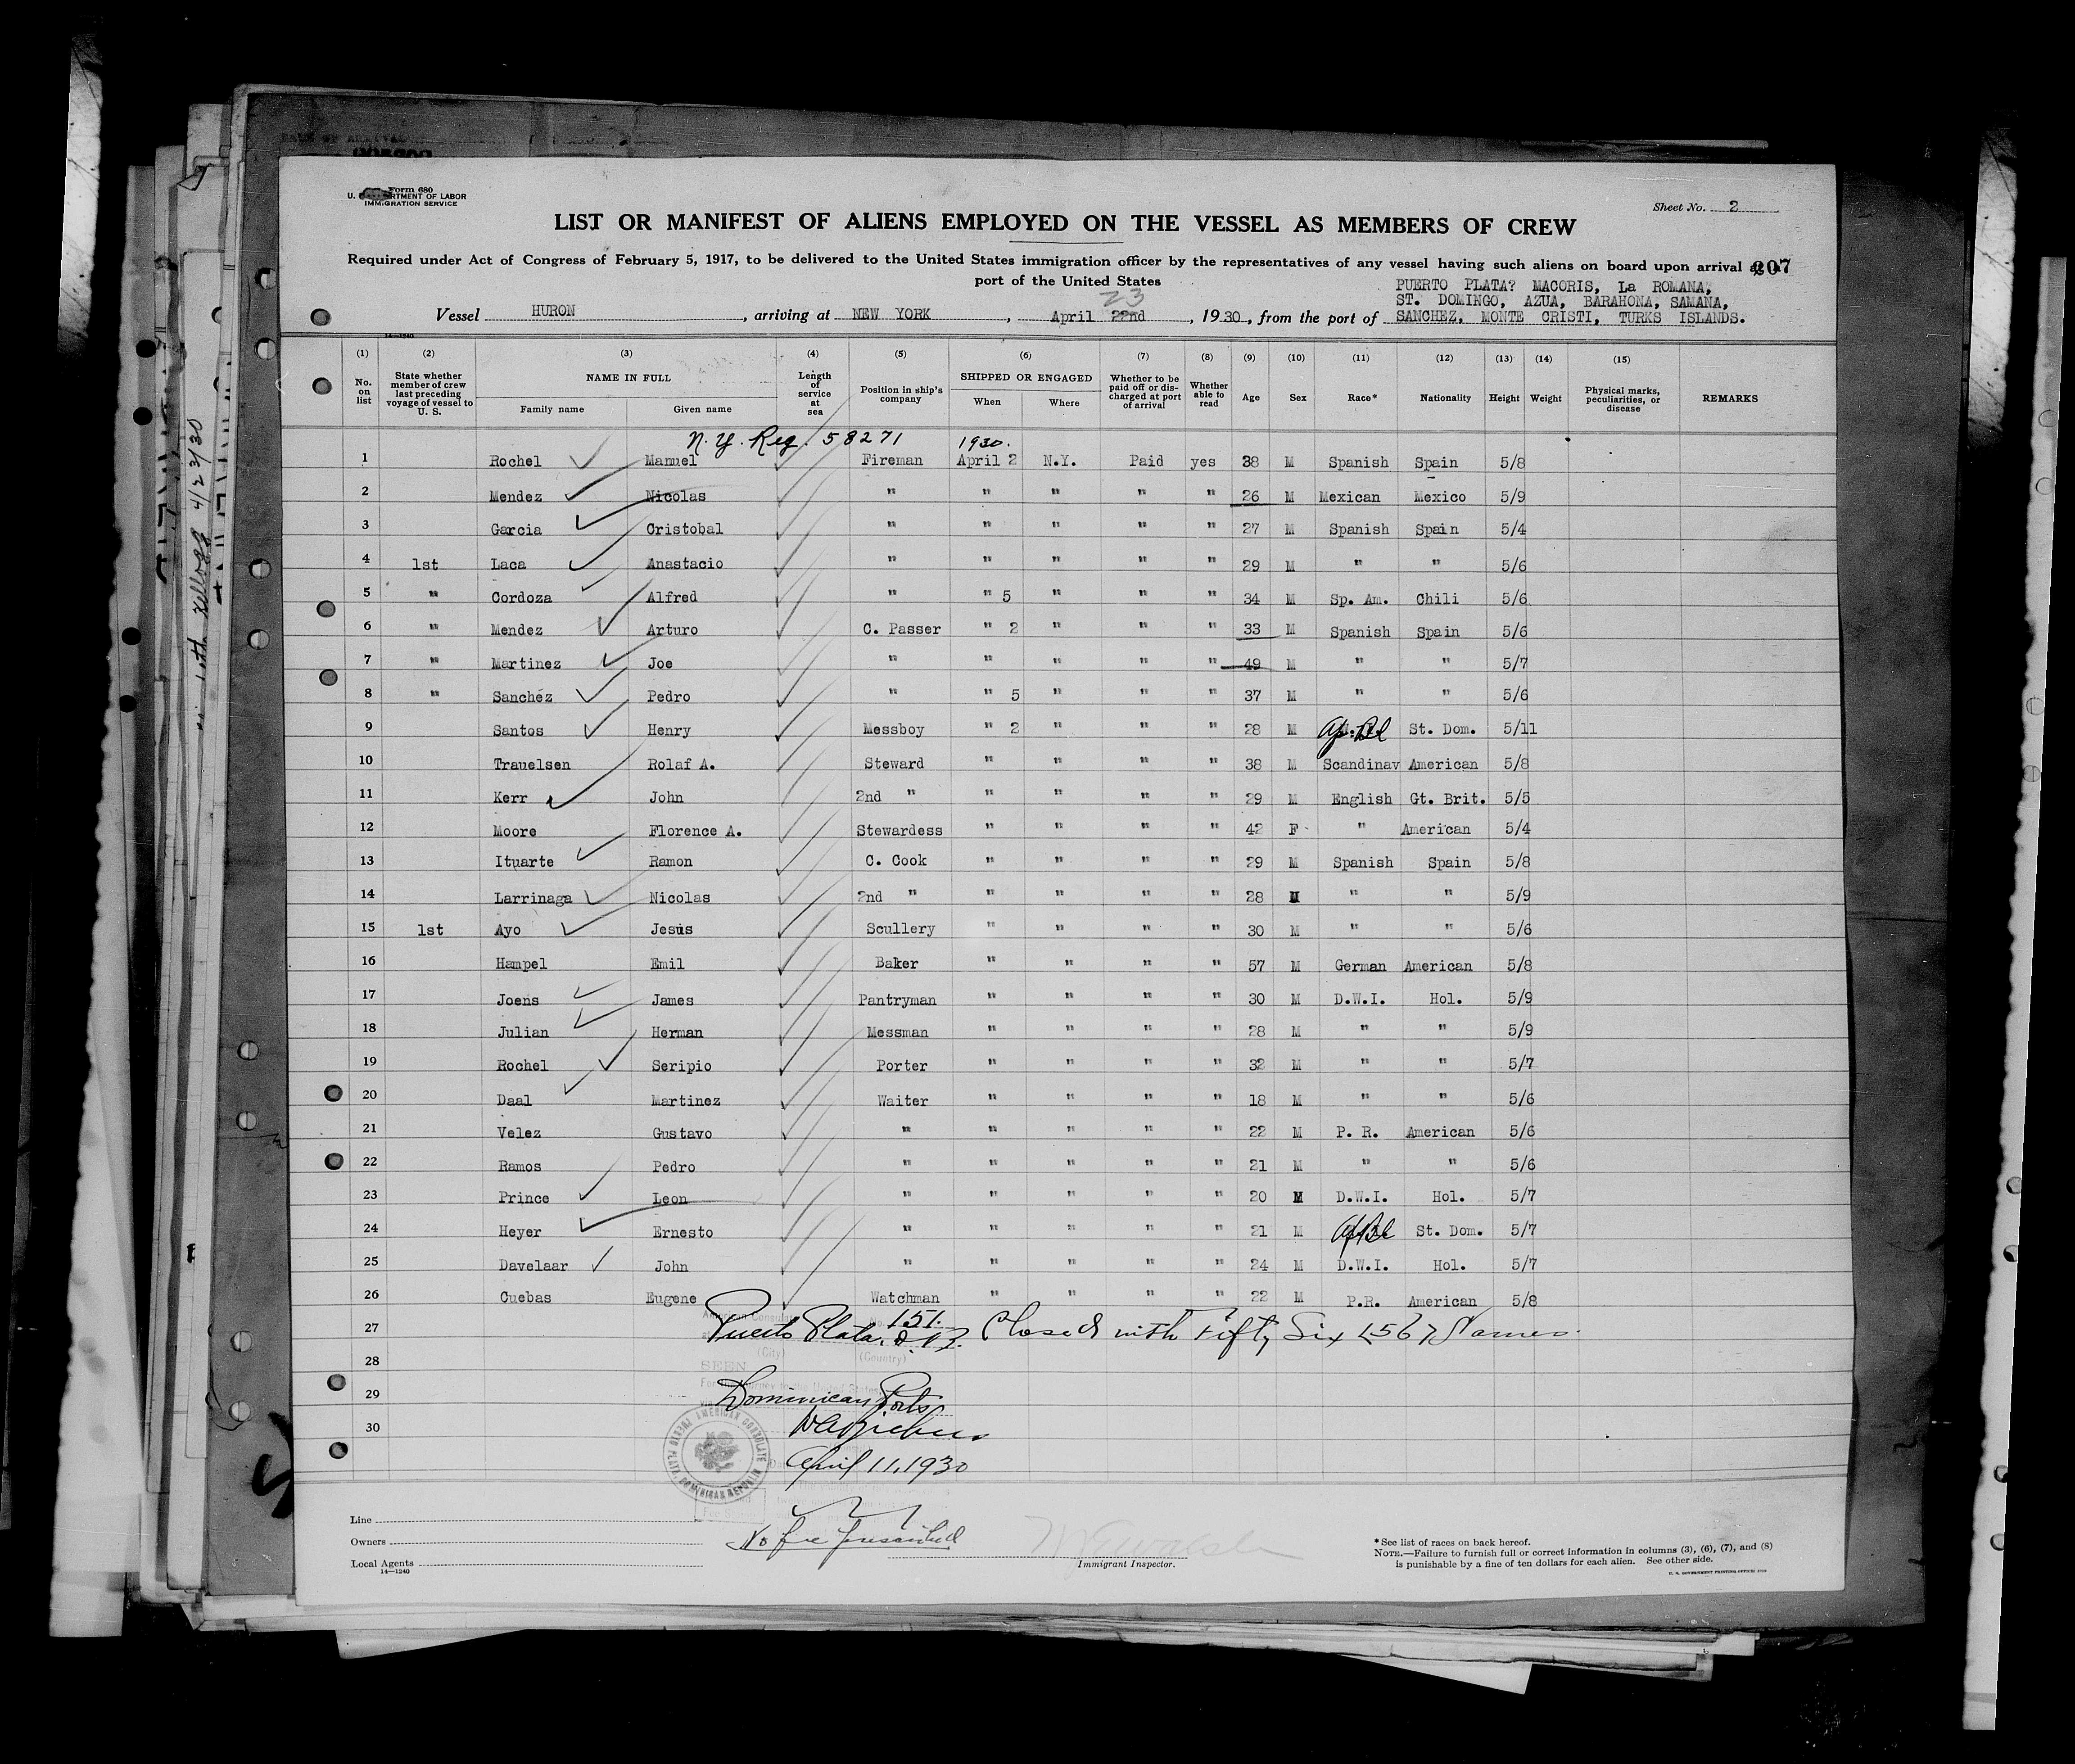 Form 680
U. S. DEPARTMENT OF LABOR
IMMIGRATION SERVICE
Sheet No. 2
LIST OR MANIFEST OF ALIENS EMPLOYED ON THE VESSEL AS MEMBERS OF CREW
Required under Act of Congress of February 5, 1917, to be delivered to the United States immigration officer by the representatives of any vessel having such aliens on board upon arrival at a
207
port of the United States
PUERTO PLATA? MACORIS, La ROMANA,
ST. DOMINGO, AZUA, BARAHONA, SAMANA,
23
Vessel HURON, arriving at NEW YORK, April 22nd, 1930, from the port of SANCHEZ, MONTE CRISTI, TURKS ISLANDS.
14—1240
(1) (2) (3) (4) (5) (6) (7) (8) (9) (10) (11) (12) (13) (14) (15)
No. on list
State whether member of crew last preceding voyage of vessel to U. S.
NAME IN FULL
Family name Given name
Length of service at sea
Position in ship's company
SHIPPED OR ENGAGED
When Where
Whether to be paid off or discharged at port of arrival
Whether able to read
Age
Sex
Race*
Nationality
Height
Weight
Physical marks, peculiarities, or disease
REMARKS
N. Y. Reg. 58271 1930.
1 Rochel Manuel Fireman April 2 N.Y. Paid yes 38 M Spanish Spain 5/8
2 Mendez Nicolas " " " " " 26 M Mexican Mexico 5/9
3 Garcia Cristobal " " " " " 27 M Spanish Spain 5/4
4 1st Laca Anastacio " " " " " 29 M " " 5/6
5 " Cordoza Alfred " " 5 " " " 34 M Sp. Am. Chili 5/6
6 " Mendez Arturo C. Passer " 2 " " " 33 M Spanish Spain 5/6
7 " Martinez Joe " " " " " 49 M " " 5/7
8 " Sanchéz Pedro " " 5 " " " 37 M " " 5/6
9 Santos Henry Messboy " 2 " " " 28 M St. Dom. 5/11
10 Trauelsen Rolaf A. Steward " " " " 38 M Scandinav American 5/8
11 Kerr John 2nd " " " " " 29 M English Gt. Brit. 5/5
12 Moore Florence A. Stewardess " " " " 42 F " American 5/4
13 Ituarte Ramon C. Cook " " " " 29 M Spanish Spain 5/8
14 Larrinaga Nicolas 2nd " " " " " 28 M " " 5/9
15 1st Ayo Jesus Scullery " " " " 30 M " " 5/6
16 Hampel Emil Baker " " " " 57 M German American 5/8
17 Joens James Pantryman " " " " 30 M D.W.I. Hol. 5/9
18 Julian Herman Messman " " " " 28 M " " 5/9
19 Rochel Seripio Porter " " " " 32 M " " 5/7
20 Daal Martinez Waiter " " " " 18 M " " 5/6
21 Velez Gustavo " " " " " 22 M P. R. American 5/6
22 Ramos Pedro " " " " " 21 M " " 5/6
23 Prince Leon " " " " " 20 M D.W.I. Hol. 5/7
24 Heyer Ernesto " " " " " 21 M St. Dom. 5/7
25 Davelaar John " " " " " 24 M D.W.I. Hol. 5/7
26 Cuebas Eugene Watchman " " " " 22 M P.R. American 5/8
151.
27 Puerto Plata, Closed with Fifty Six (56) Names.
(City) (Country)
28
SEEN
29 Dominican Ports
30
April 11, 1930
AMERICAN CONSULATE PUERTO PLATA, DOMINICAN REPUBLIC
Line
Owners
No fee prescribed
Local Agents
14—1240
Immigrant Inspector.
*See list of races on back hereof.
NOTE.—Failure to furnish full or correct information in columns (3), (6), (7), and (8)
is punishable by a fine of ten dollars for each alien. See other side.
4/23/30